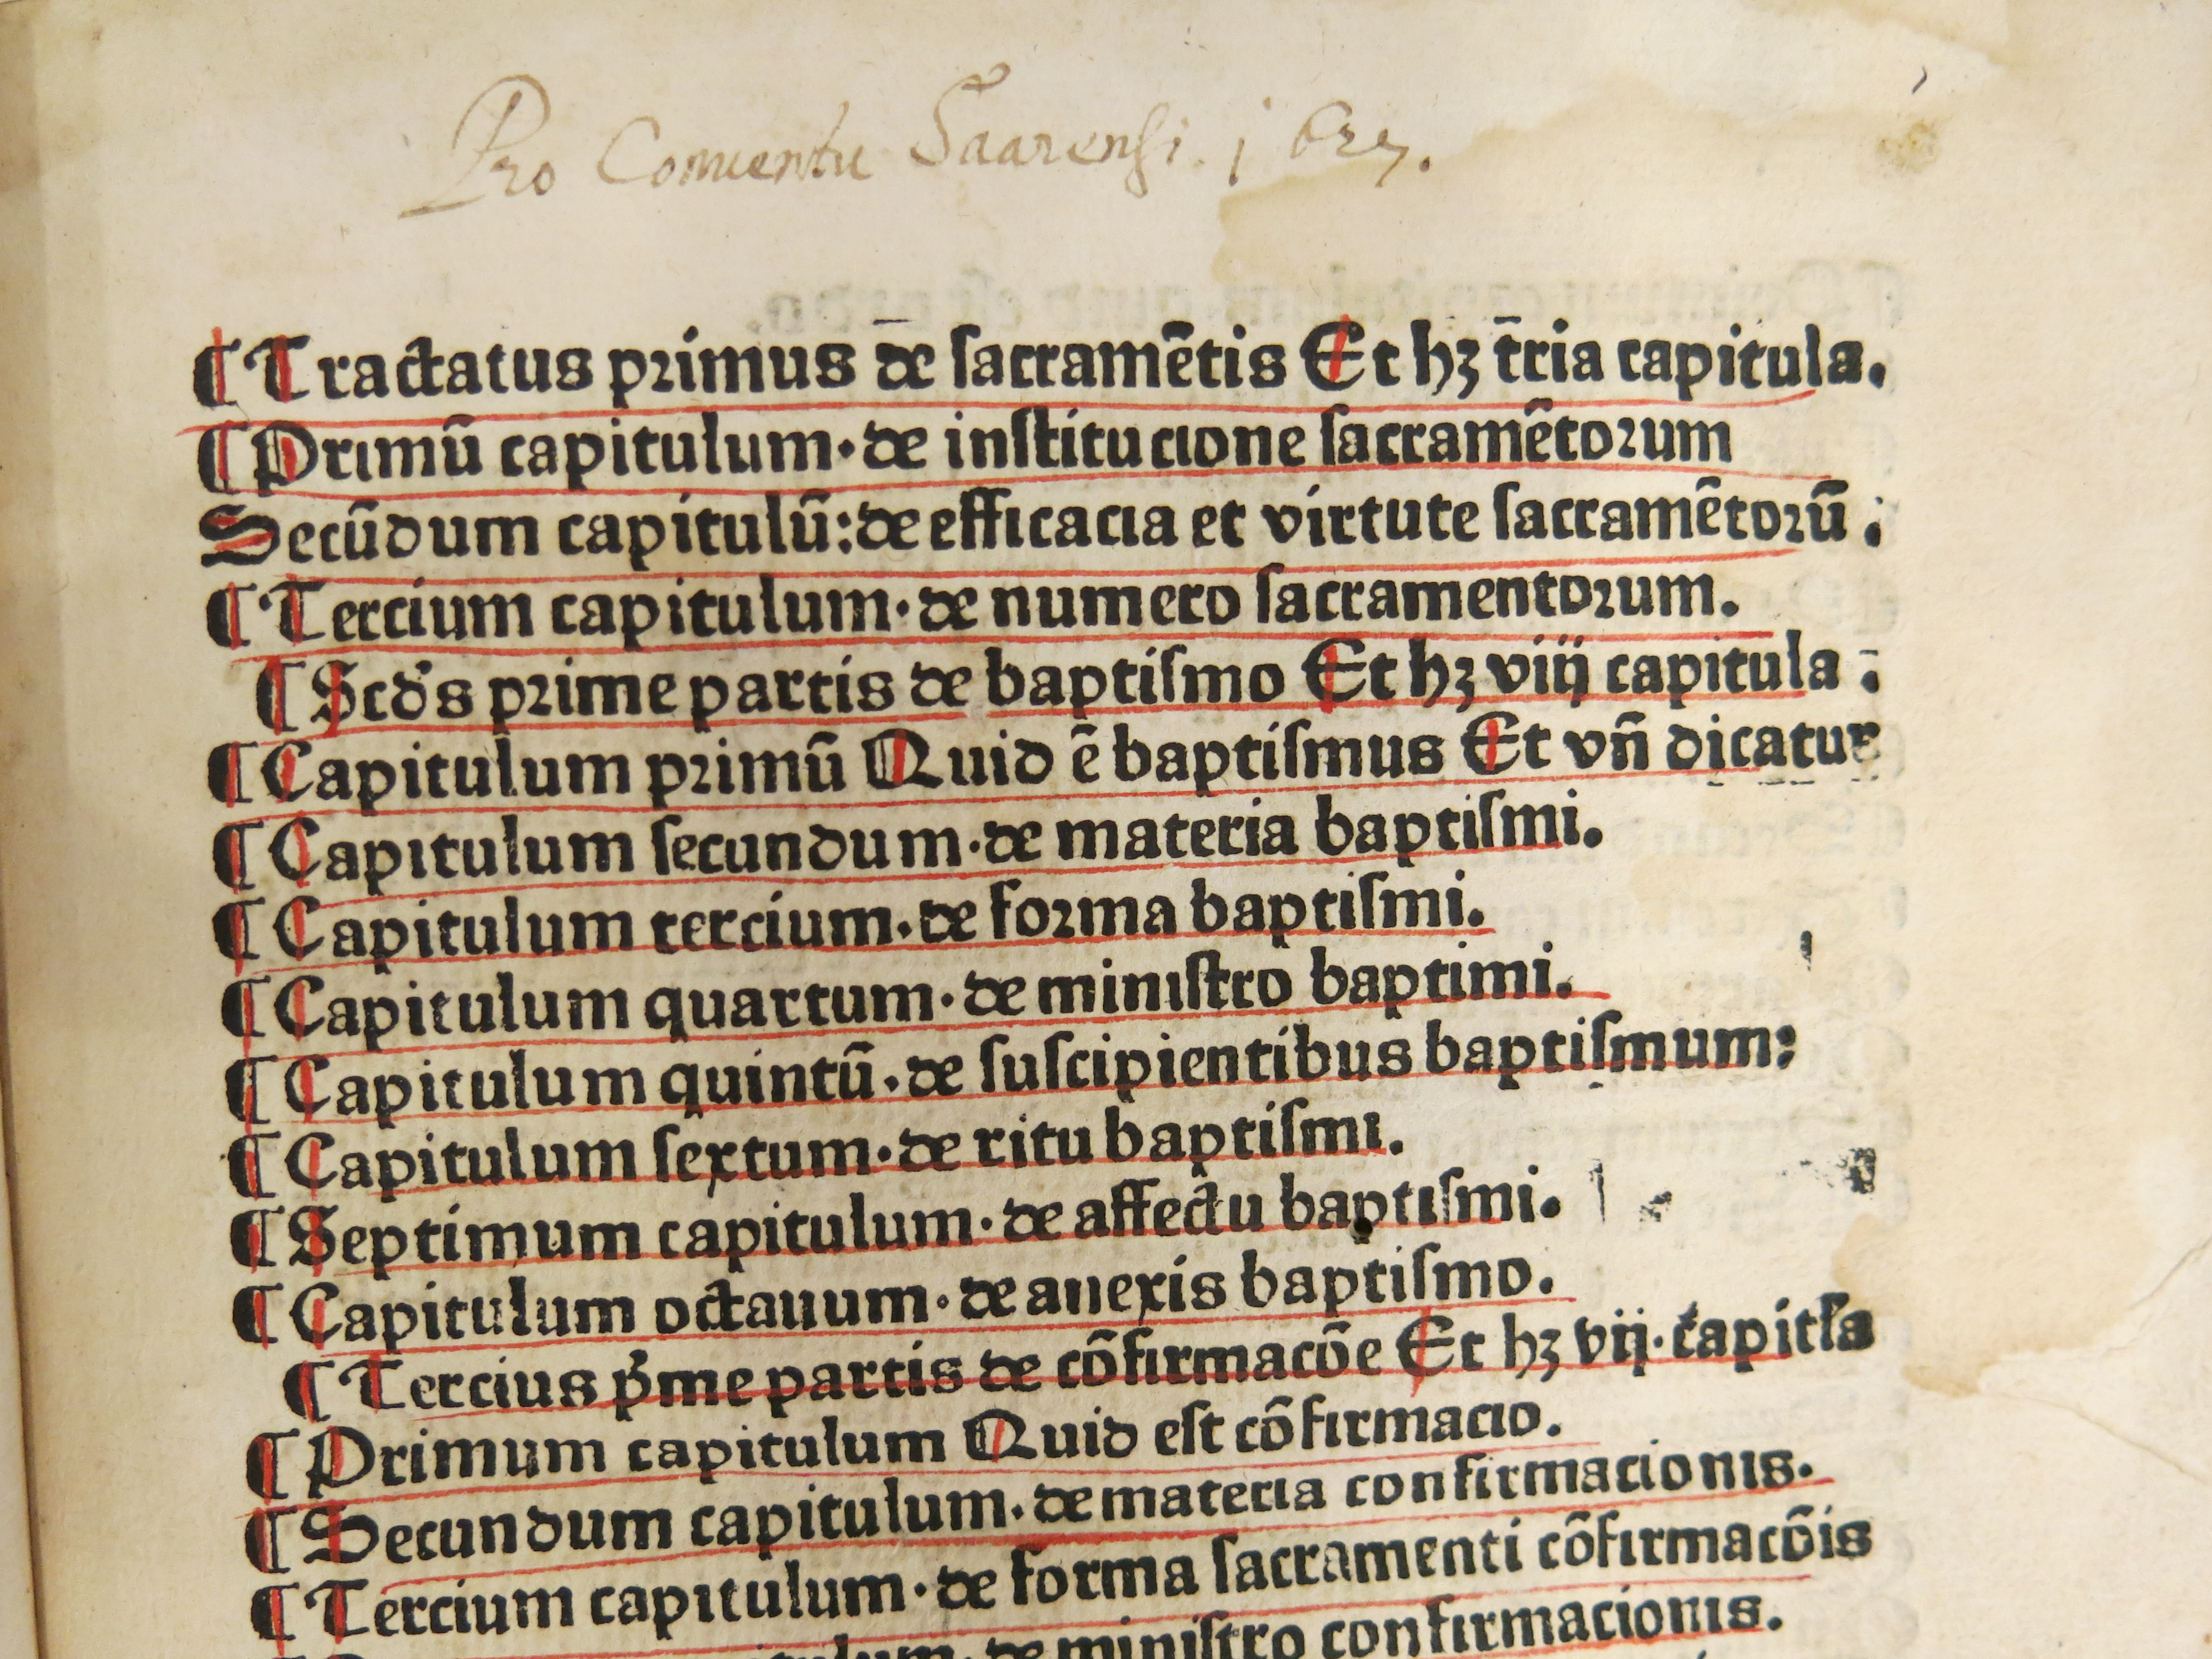 Pro Conuentu Saarensi. j627.
¶ Tractatus primus de sacramētis Et hꝫ t̄ria capitula.
¶ Primū capitulum· de institucione sacramētorum
Secūdum capitulū: de efficacia et virtute sacramētorū:
¶ Tercium capitulum· de numero sacramentorum.
¶ Scd's prime partis de baptismo Et hꝫ viij capitula:
¶ Capitulum primū Quid ē baptismus Et vn̄ dicatur
¶ Capitulum secundum· de materia baptismi.
¶ Capitulum tercium· de forma baptismi.
¶ Capitulum quartum· de ministro baptimi.
¶ Capitulum quintū· de suscipientibus baptismum:
¶ Capitulum sextum· de ritu baptismi.
¶ Septimum capitulum· de affectu baptismi.
¶ Capitulum octauum· de anexis baptismo.
¶ Tercius p̄me partis de cōfirmacōe Et hꝫ vij· capitła
¶ Primum capitulum Quid est cōfirmacio.
¶ Secundum capitulum· de materia confirmacionis.
¶ Tercium capitulum· de forma sacramenti cōfirmacōis
de ministro confirmacionis.